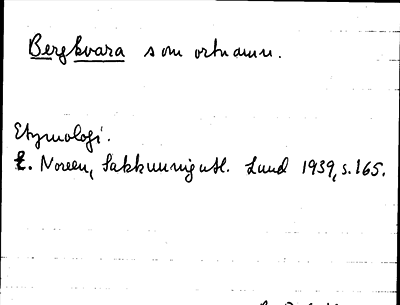 Bergkvara som ortnamn.
Etymologi.
E. Noreen, Sakkunnigutl. Lund 1939, s. 165.